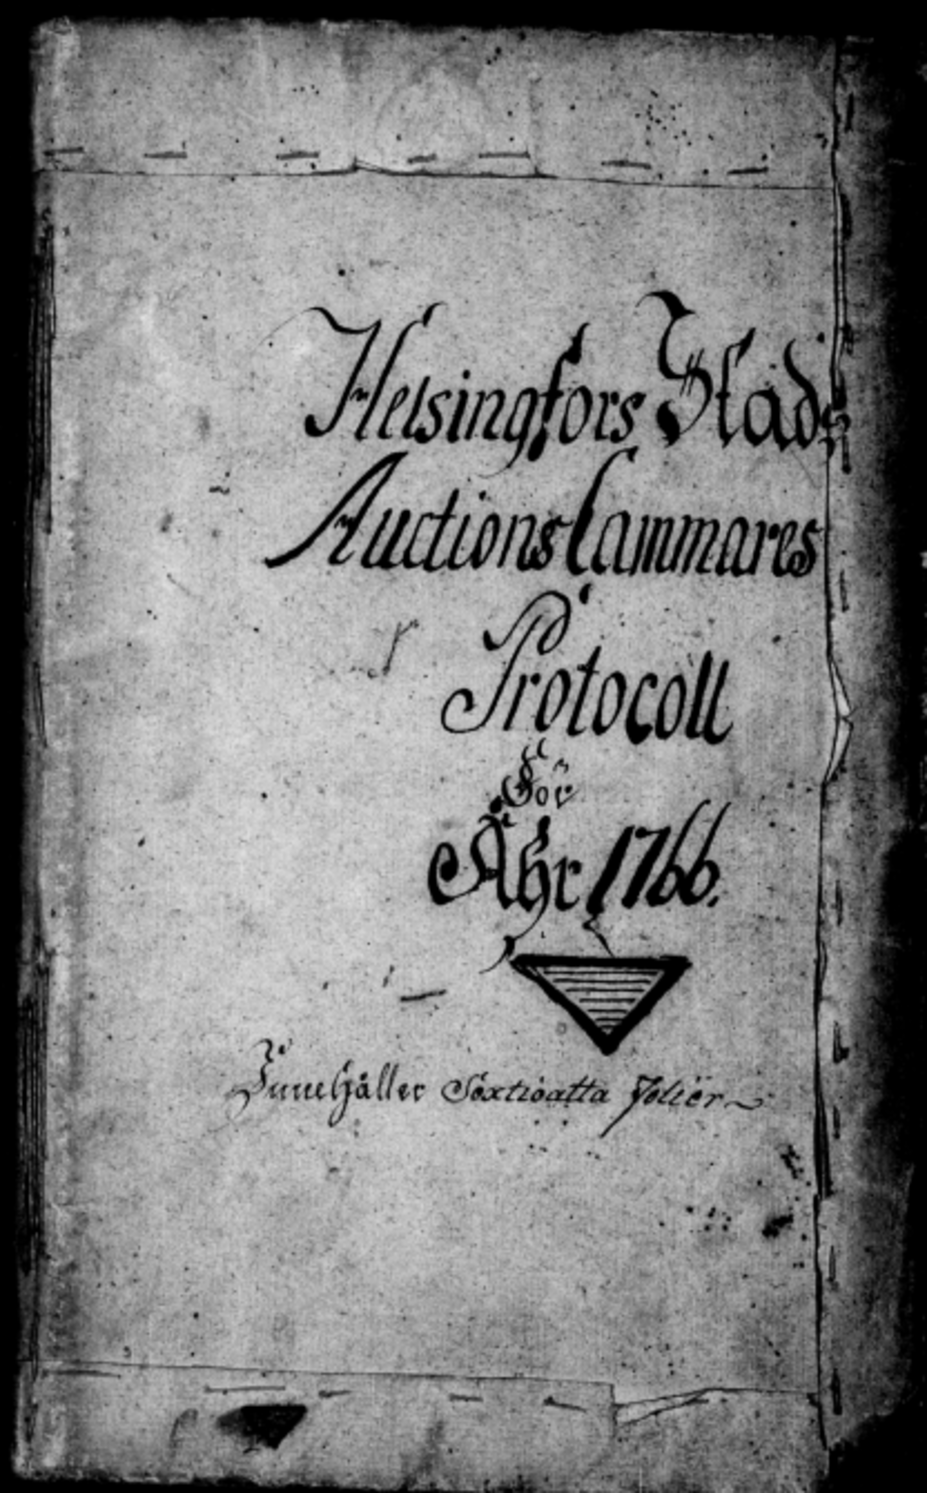 Helsingfors Stads
Auctions Cammares
Protocoll
För
Åhr 1766.
Innehåller Sextioåtta Folier